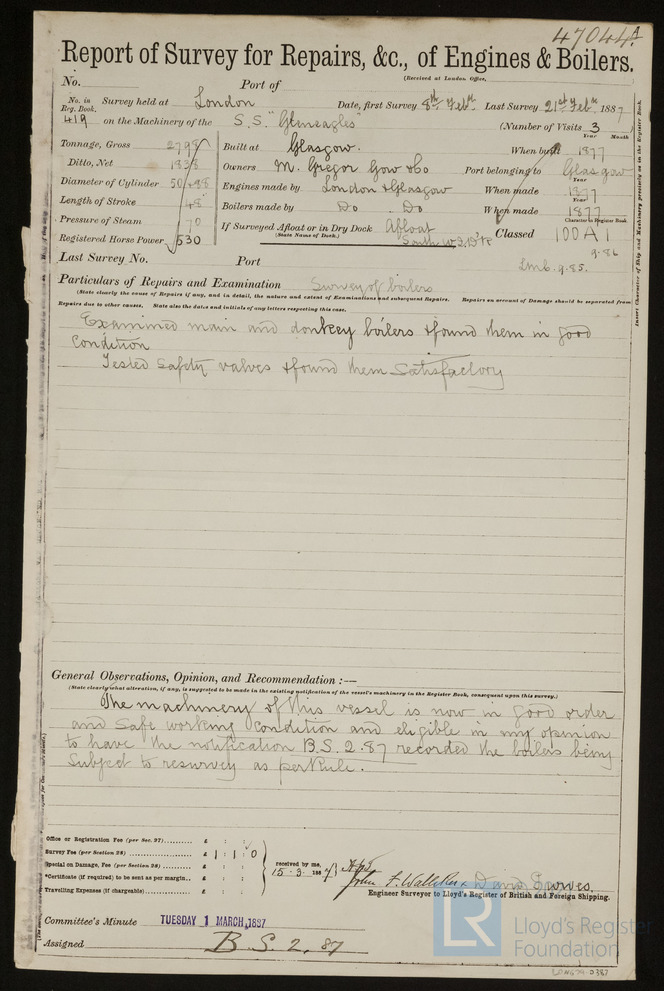 47044A
Report of Survey for Repairs, &c., of Engines & Boilers.
(Received at London Office,
No. Port of
No. in Reg. Book. Survey held at London Date, first Survey 8th Feby Last Survey 21st Feby 1887
419 on the Machinery of the S.S. "Gleneagles" (Number of Visits 3
Year Month
Tonnage, Gross 2798 Built at Glasgow. When built 1877
Ditto, Net 1838 Owners McGregor Gow & Co Port belonging to Glasgow
Diameter of Cylinder 50 & 88 Engines made by London & Glasgow When made 1877
Year
Length of Stroke 48 Boilers made by Do Do When made 1877
Pressure of Steam 70 If Surveyed Afloat or in Dry Dock Afloat Classed 100 A 1
Character in Register Book
(State Name of Dock.) South W. I.
Registered Horse Power 530 9.86
Last Survey No. Port Lmb. 9.85.
Particulars of Repairs and Examination Survey of boilers
(State clearly the cause of Repairs if any, and in detail, the nature and extent of Examinations and subsequent Repairs. Repairs on account of Damage should be separated from
Repairs due to other causes. State also the dates and initials of any letters respecting this case.
Examined main and donkey boilers & found them in good
condition
Tested Safety valves & found them Satisfactory
General Observations, Opinion, and Recommendation :—
(State clearly what alteration, if any, is suggested to be made in the existing notification of the vessel's machinery in the Register Book, consequent upon this survey.)
The machinery of this vessel is now in good order
and safe working condition and eligible in my opinion
to have the notification B.S. 2.87 recorded the boilers being
Subject to resurvey as per Rule.
Office or Registration Fee (per Sec. 27) £ : :
Survey Fee (per Section 28) £ 1 : 1 : 0
Special on Damage, Fee (per Section 28) £ : :
*Certificate (if required) to be sent as per margin £ : :
Travelling Expenses (if chargeable) £ : :
received by me,
15.3.1887
John F. Walliker & David Gowdes
Engineer Surveyor to Lloyd's Register of British and Foreign Shipping.
Committee's Minute TUESDAY 1 MARCH, 1887
Assigned B.S. 2, 87
LR Lloyd's Register
Foundation
Insert Character of Ship and Machinery precisely as in the Register Book.
LON679-0387